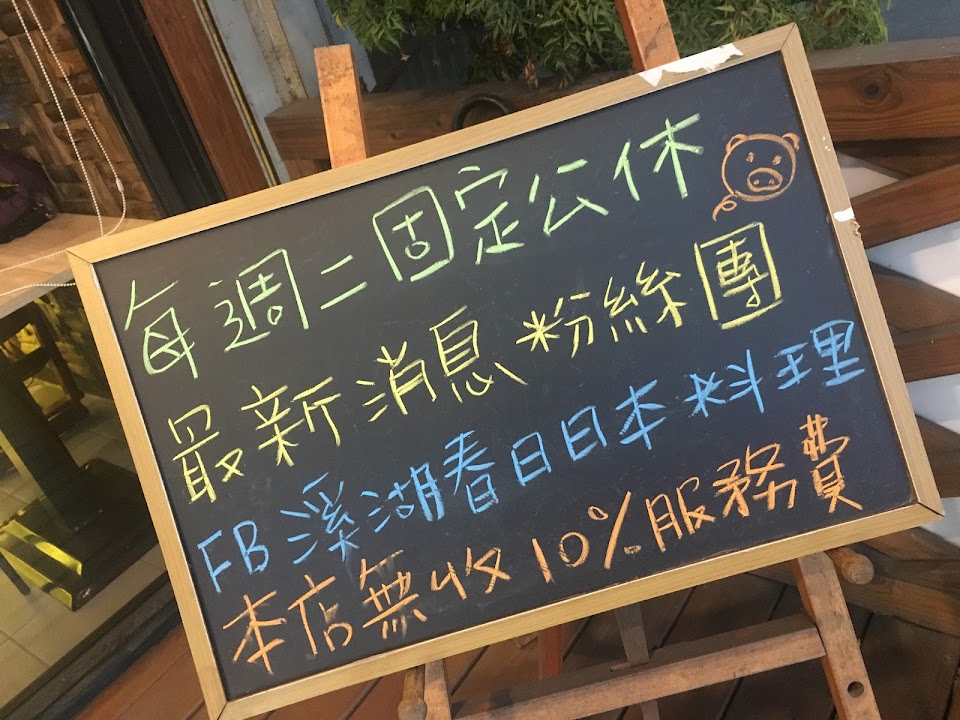 每週二固定公休
最新消息粉絲團
FB溪湖春日日本料理
本店無收10%服務費